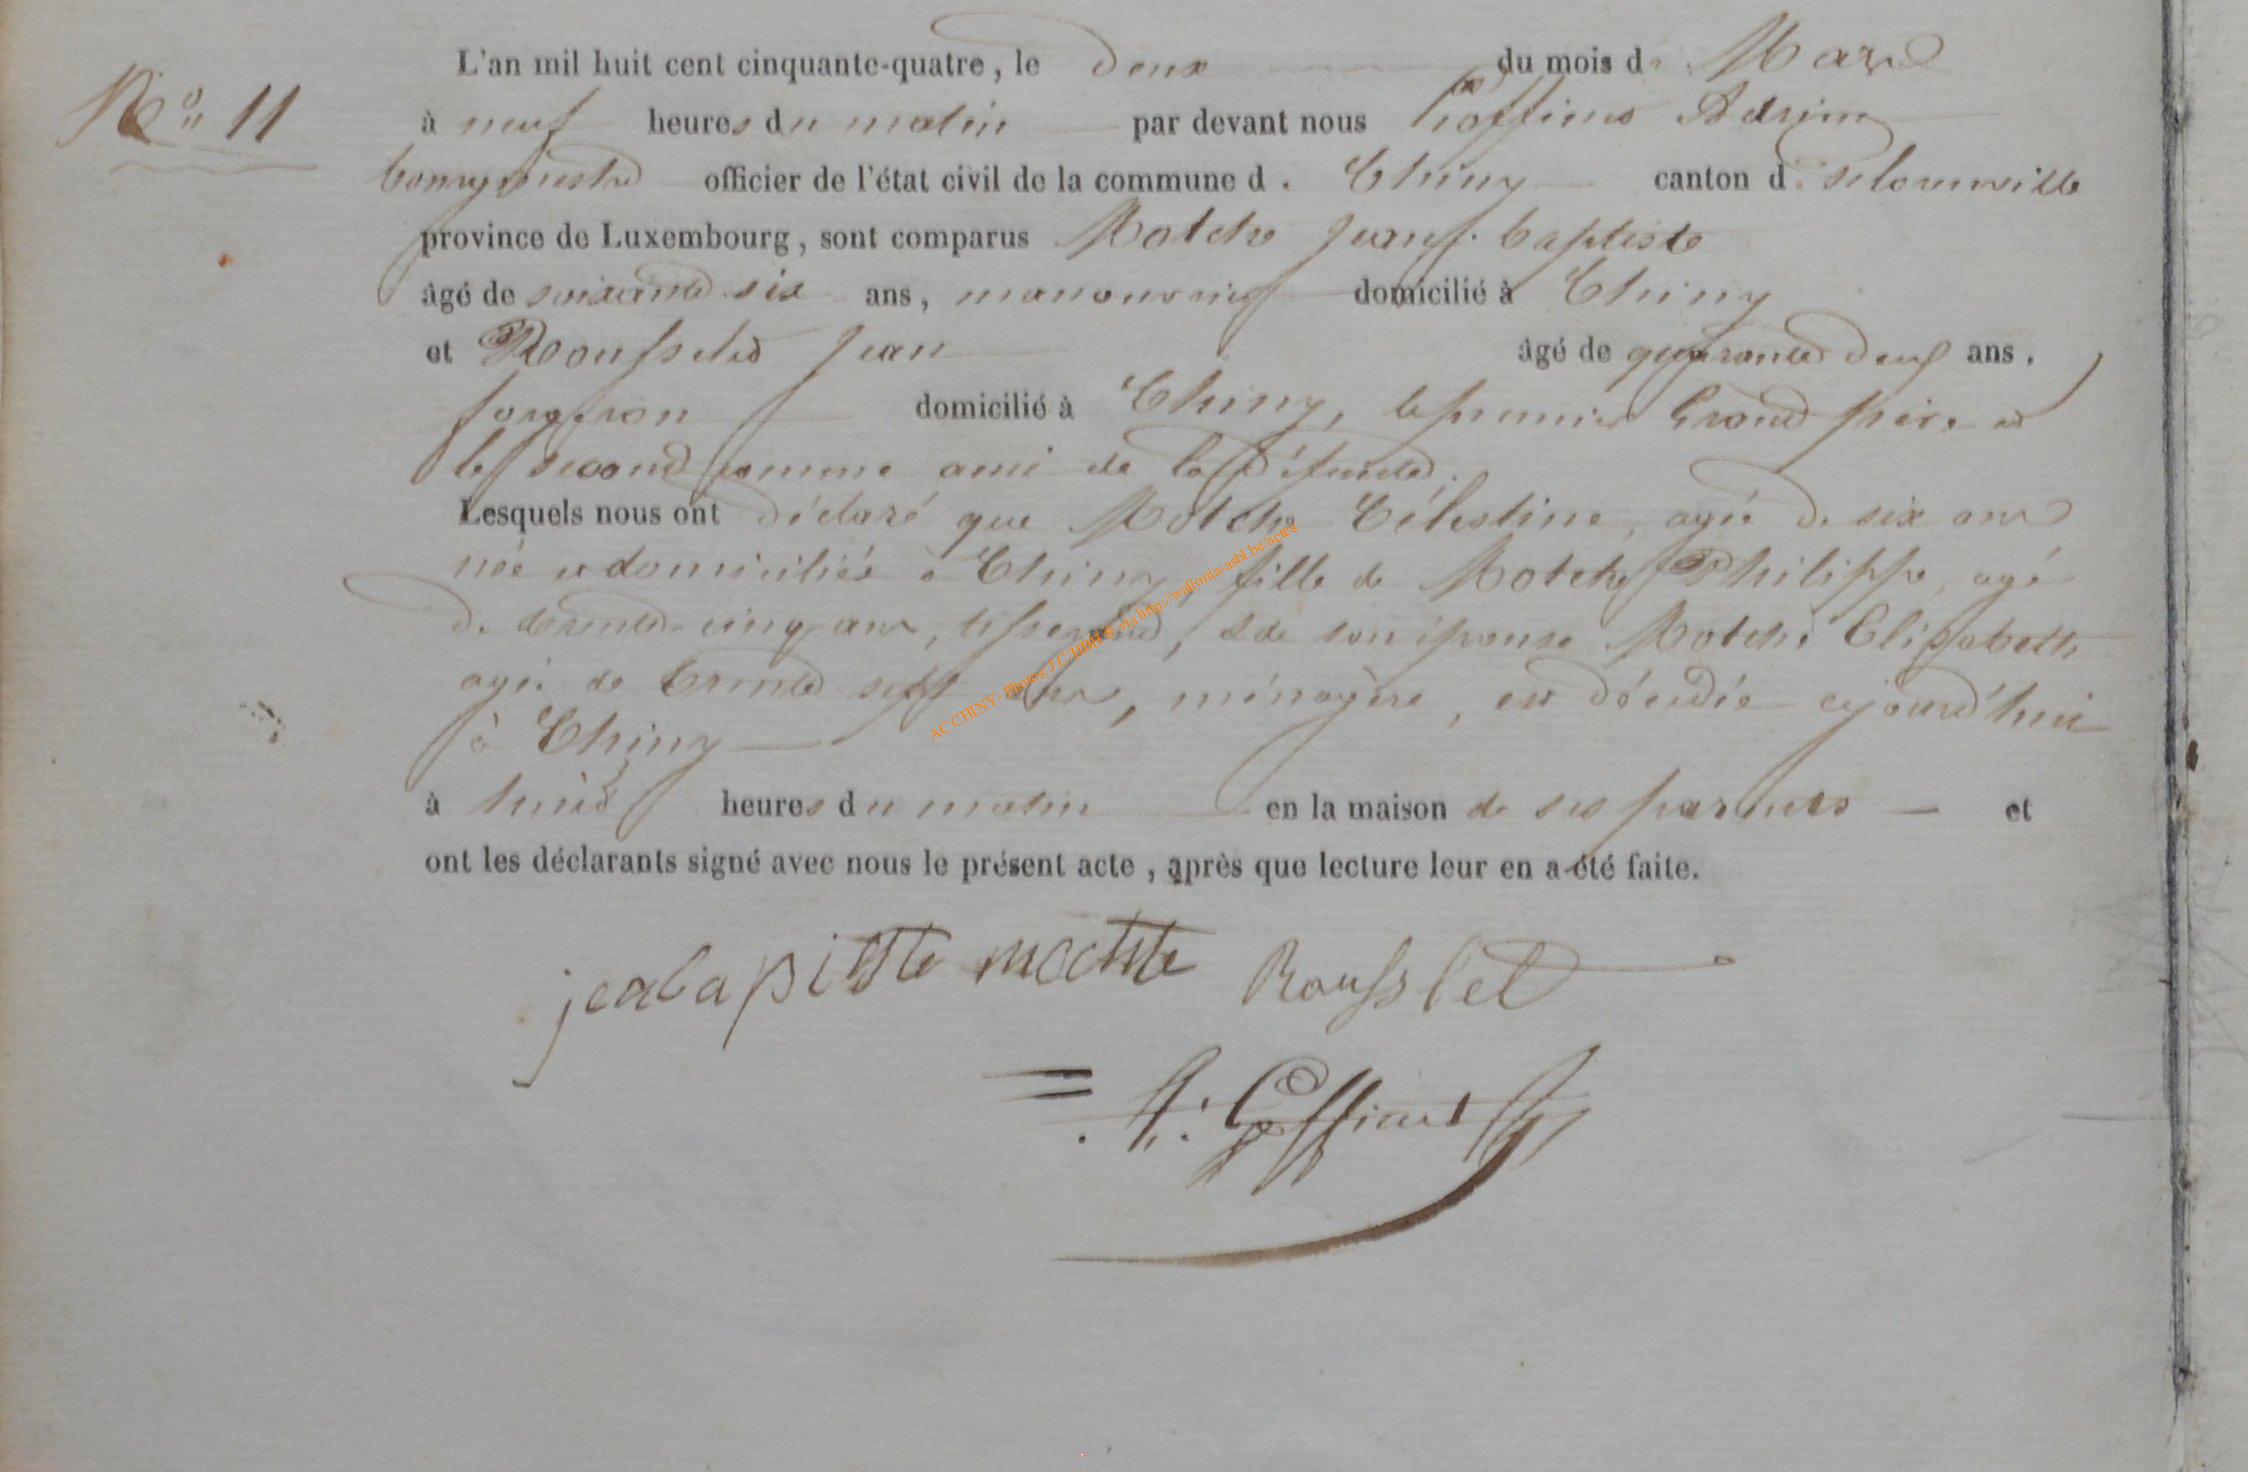 L'an mil huit cent cinquante-quatre, le deux du mois de Mars
N° 11
à neuf heures du matin par devant nous Goffinet Adrien
bourgmestre officier de l'état civil de la commune d. Chiny canton d. florenville
province de Luxembourg, sont comparus Motch Jean baptiste
âgé de soixante six ans, manouvrier domicilié à Chiny
et Rousselet Jean âgé de quarante deux ans.
forgeron domicilié à Chiny, le premier Grand père et
le second comme ami de la défunte.
Lesquels nous ont déclaré que Motch Célestine, agée de six ans
née et domiciliée à Chiny, fille de Motch Philippe, agé
de trente-cinq ans, tisserand, & de son épouse Motch Elisabeth
agée de trente sept ans, ménagère, est décédée cejourd'hui
à Chiny
à huit heures du matin en la maison de ses parents et
ont les déclarants signé avec nous le présent acte, après que lecture leur en a été faite.
jeabapiste Rousslet
A. Goffinet
AC CHINY - Photos J.C. via http://wallonia-asbl.be/actes